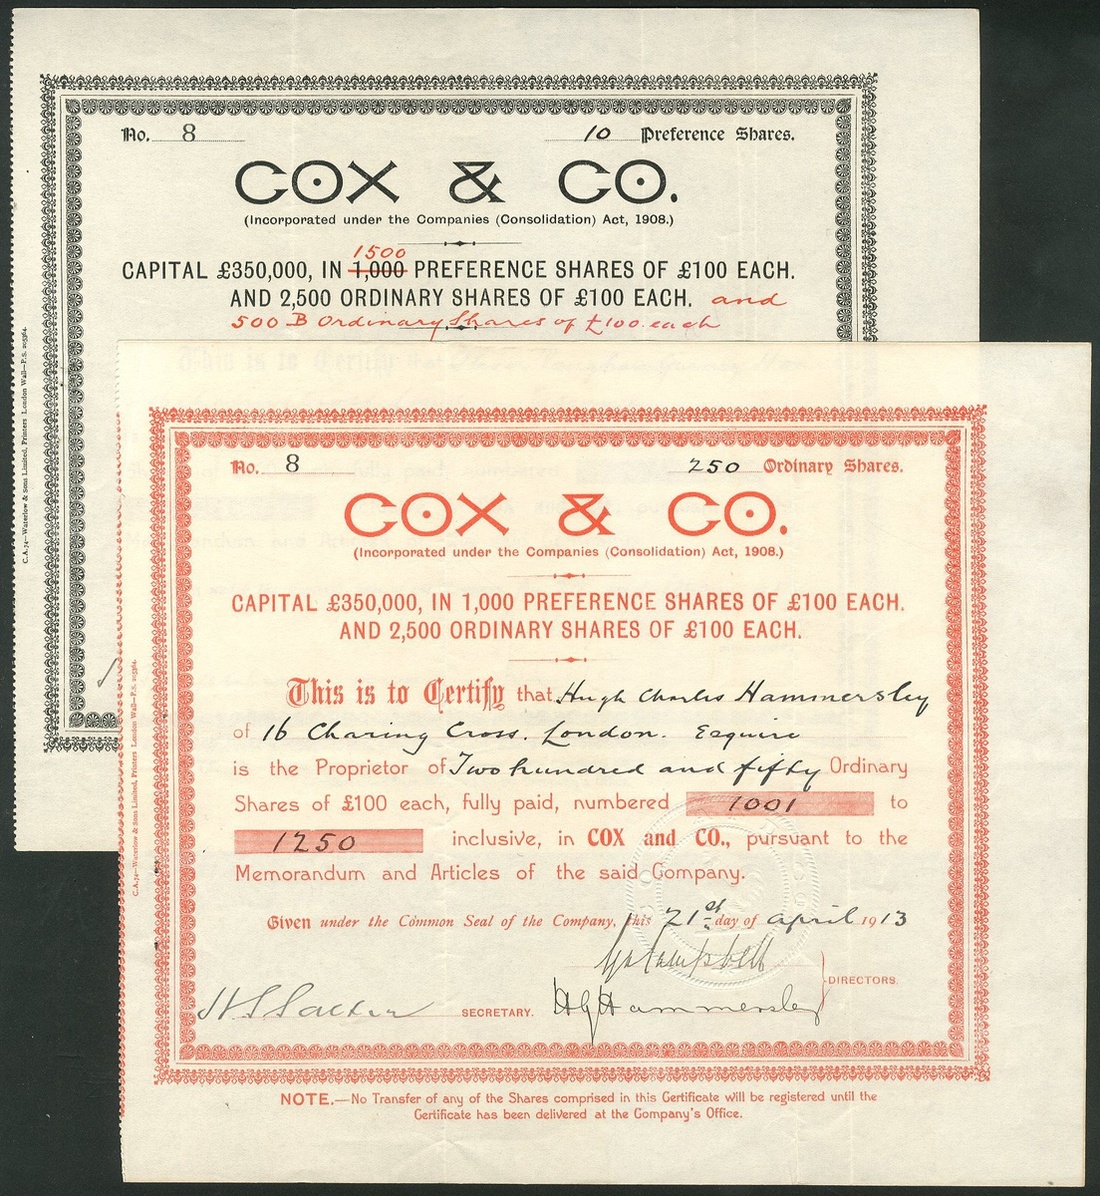 No. 8 10 Preference Shares.
COX & CO.
(Incorporated under the Companies (Consolidation) Act, 1908.)
1500
CAPITAL £350,000, IN 1,000 PREFERENCE SHARES OF £100 EACH.
AND 2,500 ORDINARY SHARES OF £100 EACH. and
500 B Ordinary Shares of £100 each
This is to Certify
C.A.74—Waterlow & Sons Limited, Printers London Wall—P.S. 205364.
No. 8 250 Ordinary Shares.
COX & CO.
(Incorporated under the Companies (Consolidation) Act, 1908.)
CAPITAL £350,000, IN 1,000 PREFERENCE SHARES OF £100 EACH.
AND 2,500 ORDINARY SHARES OF £100 EACH.
This is to Certify that Hugh Charles Hammersley
of 16 Charing Cross. London. Esquire
is the Proprietor of Two hundred and fifty Ordinary
Shares of £100 each, fully paid, numbered 1001 to
1250 inclusive, in COX and CO., pursuant to the
Memorandum and Articles of the said Company.
Given under the Common Seal of the Company, this 21st day of april 1913
Campbell
DIRECTORS.
SECRETARY. Hammersley
NOTE.—No Transfer of any of the Shares comprised in this Certificate will be registered until the
Certificate has been delivered at the Company's Office.
C.A.74—Waterlow & Sons Limited, Printers London Wall—P.S. 205364.